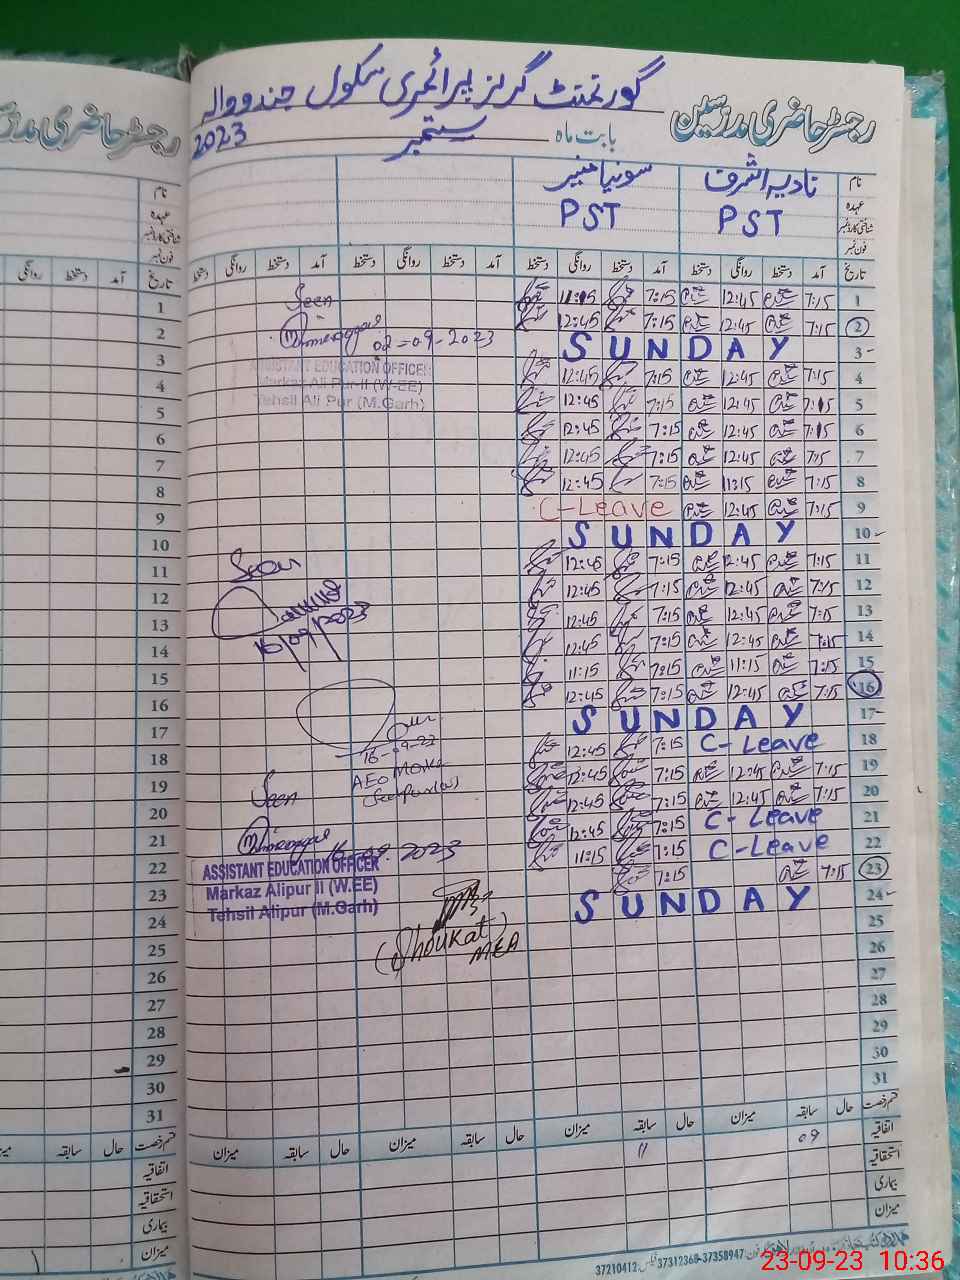 گورنمنٹ گرلز پرائمری سکول جندووالہ
رجسٹر حاضری مدرسین
بابت ماہ ستمبر 2023
نام نادیہ اشرف سونیا منیر
عہدہ PST PST
شناختی کارڈ نمبر
فون نمبر
تاریخ آمد دستخط روانگی دستخط آمد دستخط روانگی دستخط آمد دستخط روانگی دستخط آمد دستخط روانگی دستخط
1 7:15 12:45 7:15 11:15
2 7:15 12:45 7:15 12:45
3 SUNDAY
4 7:15 12:45 7:15 12:45
5 7:15 12:45 7:15 12:45
6 7:15 12:45 7:15 12:45
7 7:15 12:45 7:15 12:45
8 7:15 11:15 7:15 12:45
9 7:15 12:45 C-Leave
10 SUNDAY
11 7:15 12:45 7:15 12:45
12 7:15 12:45 7:15 12:45
13 7:15 12:45 7:15 12:45
14 7:15 12:45 7:15 12:45
15 7:15 11:15 7:15 11:15
16 7:15 12:45 7:15 12:45
17 SUNDAY
18 C-Leave 7:15 12:45
19 7:15 12:45 7:15 12:45
20 7:15 12:45 7:15 12:45
21 C-Leave 7:15 12:45
22 C-Leave 7:15 11:15
23 7:15 7:15
24 SUNDAY
25
26
27
28
29
30
31
Seen
02-09-2023
ASSISTANT EDUCATION OFFICER
Markaz Ali Pur-II (W-EE)
Tehsil Ali Pur (M.Garh)
Seen
16/09/2023
16-09-23
AEO
Seen
16.09.2023
ASSISTANT EDUCATION OFFICER
Markaz Alipur II (W.EE)
Tehsil Alipur (M.Garh)
(Shoukat)
MEA
قسم رخصت حال سابقہ میزان حال سابقہ میزان حال سابقہ میزان حال سابقہ میزان
اتفاقیہ 09 11
استحقاقیہ
بیماری
میزان
37210412 37312368-37358947
رجسٹر حاضری مدرسین
نام
عہدہ
شناختی کارڈ نمبر
فون نمبر
تاریخ آمد دستخط روانگی
1
2
3
4
5
6
7
8
9
10
11
12
13
14
15
16
17
18
19
20
21
22
23
24
25
26
27
28
29
30
31
قسم رخصت حال سابقہ
اتفاقیہ
استحقاقیہ
بیماری
میزان
23-09-23 10:36